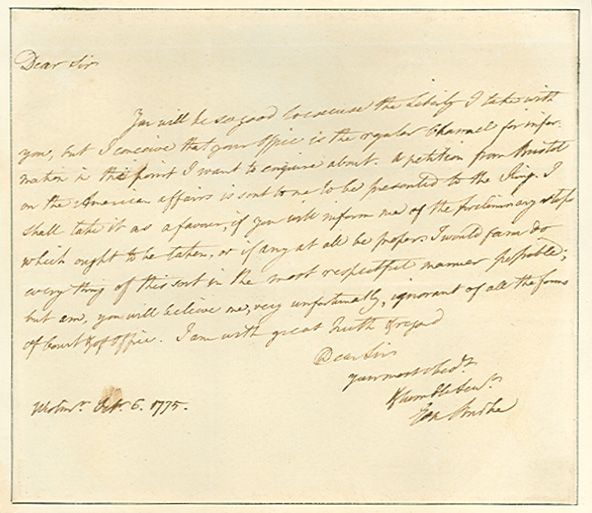 Dear Sir
You will be so good to excuse the liberty I take with
you, but I conceive that your Office is the regular Channel for infor
mation in the point I want to enquire about. A petition from Bristol
on the American affairs is sent to me to be presented to the King. I
shall take it as a favour, if you will inform me of the preliminary steps
which ought to be taken, or if any at all be proper. I would fain do
every thing of this sort in the most respectful manner possible;
but am, you will believe me, very unfortunately, ignorant of all the forms
of Court & of Office. I am with great truth & regard
Dear Sir
your most obedt.
& humble Servt.
Edm Burke
Westmr. Oct. 6. 1775.